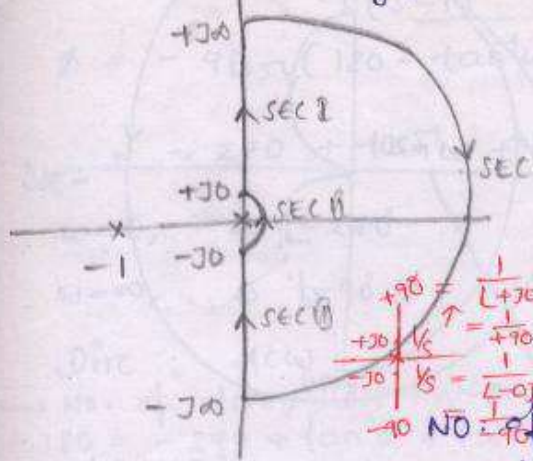 +J∞
SEC I
SEC
+J0
SEC IV
-J0
-1
SEC III
-J∞
+90 = 1/∠+J0
+J0 1/s = 1/+90
-J0 1/s = 1/∠-0
-90 NO. of